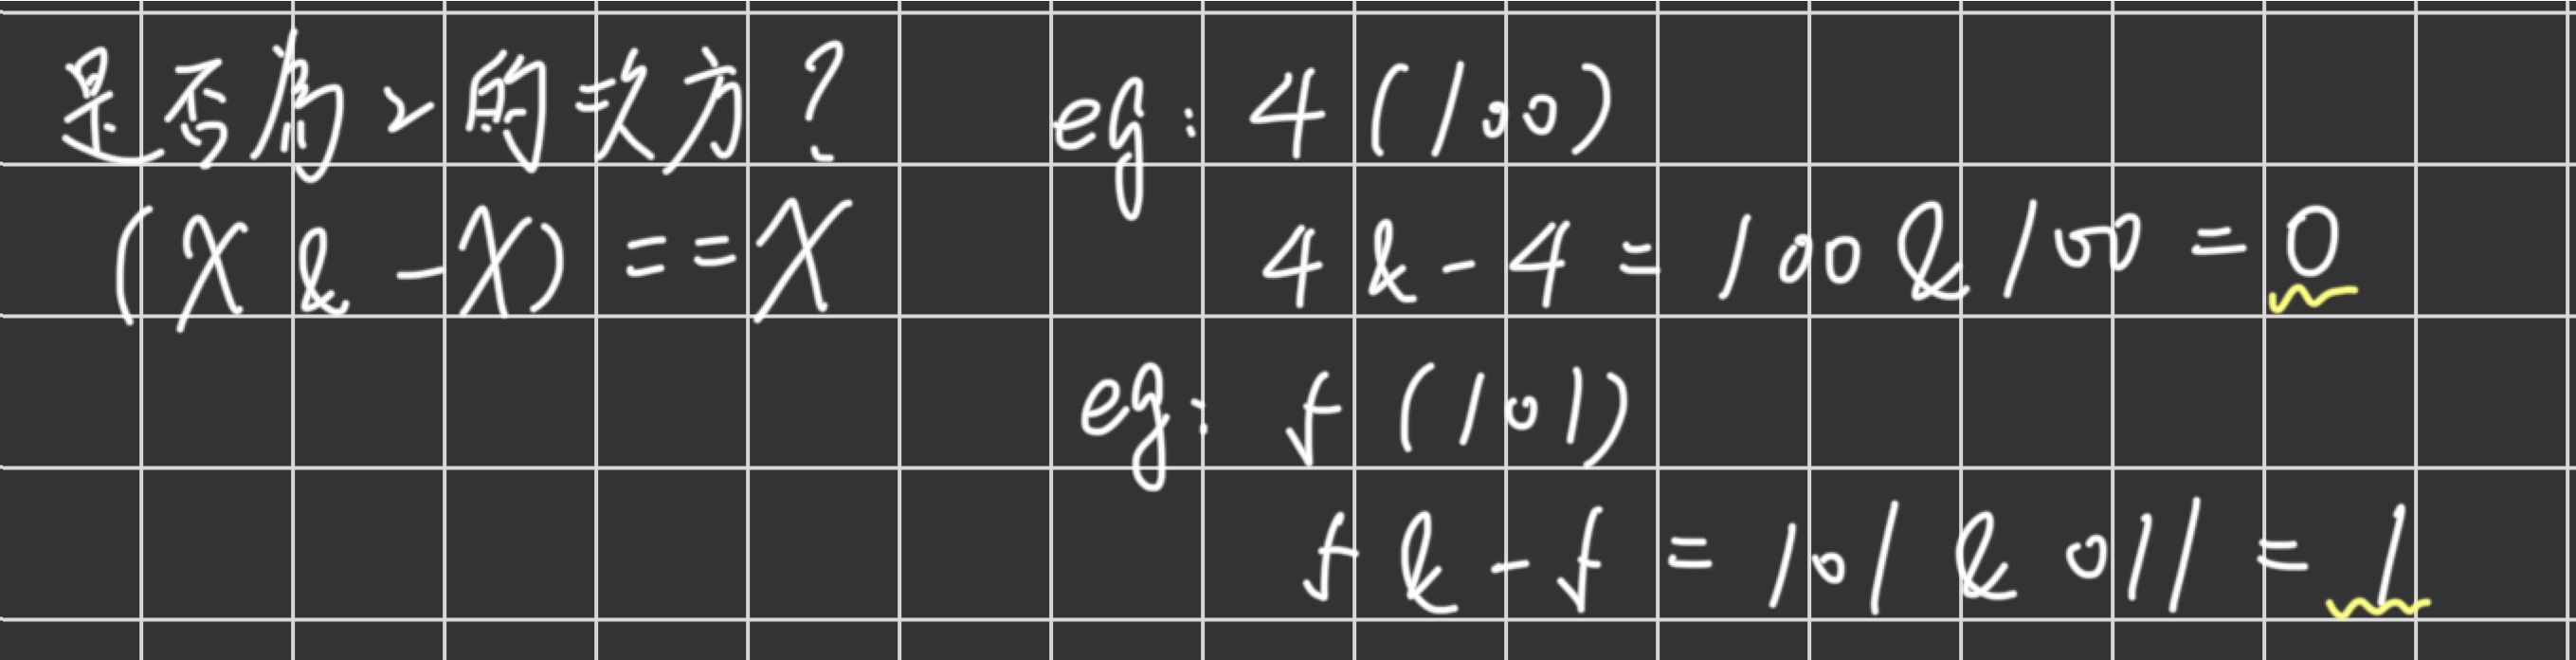 是否為2的次方?
(X & -X) == X
eg: 4 (100)
4 & -4 = 100 & 100 = 0
eg: 5 (101)
5 & -5 = 101 & 011 = 1